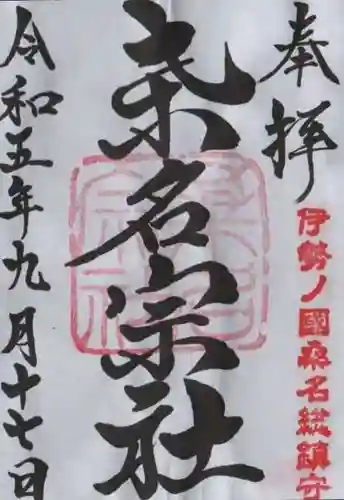 奉拝
伊勢ノ國桑名総鎮守
桑名宗社
令和五年九月十七日